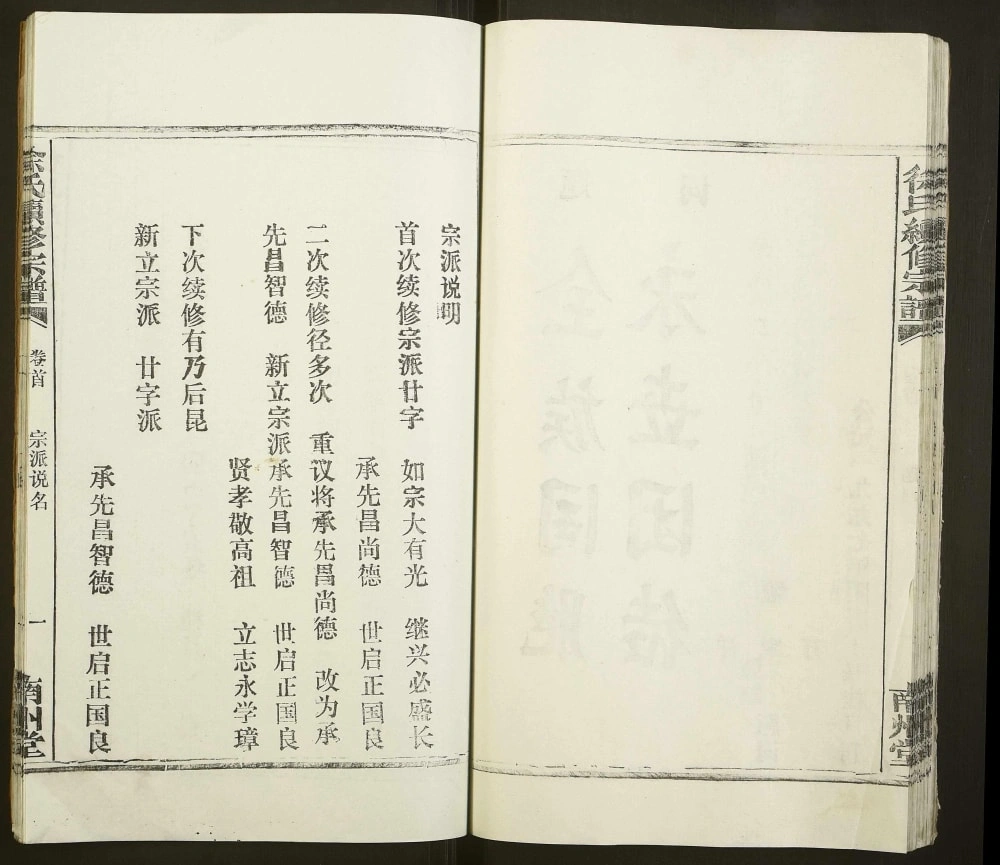 徐氏續修宗譜
南州堂
宗派说明
首次续修宗派廿字 如宗大有光 继兴必盛长
承先昌尚德 世启正国良
二次续修径多次 重议将承先昌尚德 改为承
先昌智德 新立宗派承先昌智德 世启正国良
贤孝敬高祖 立志永学璋
下次续修有乃后昆
新立宗派 廿字派
承先昌智德 世启正国良
徐氏續修宗譜 卷首 宗派说名 一 南州堂